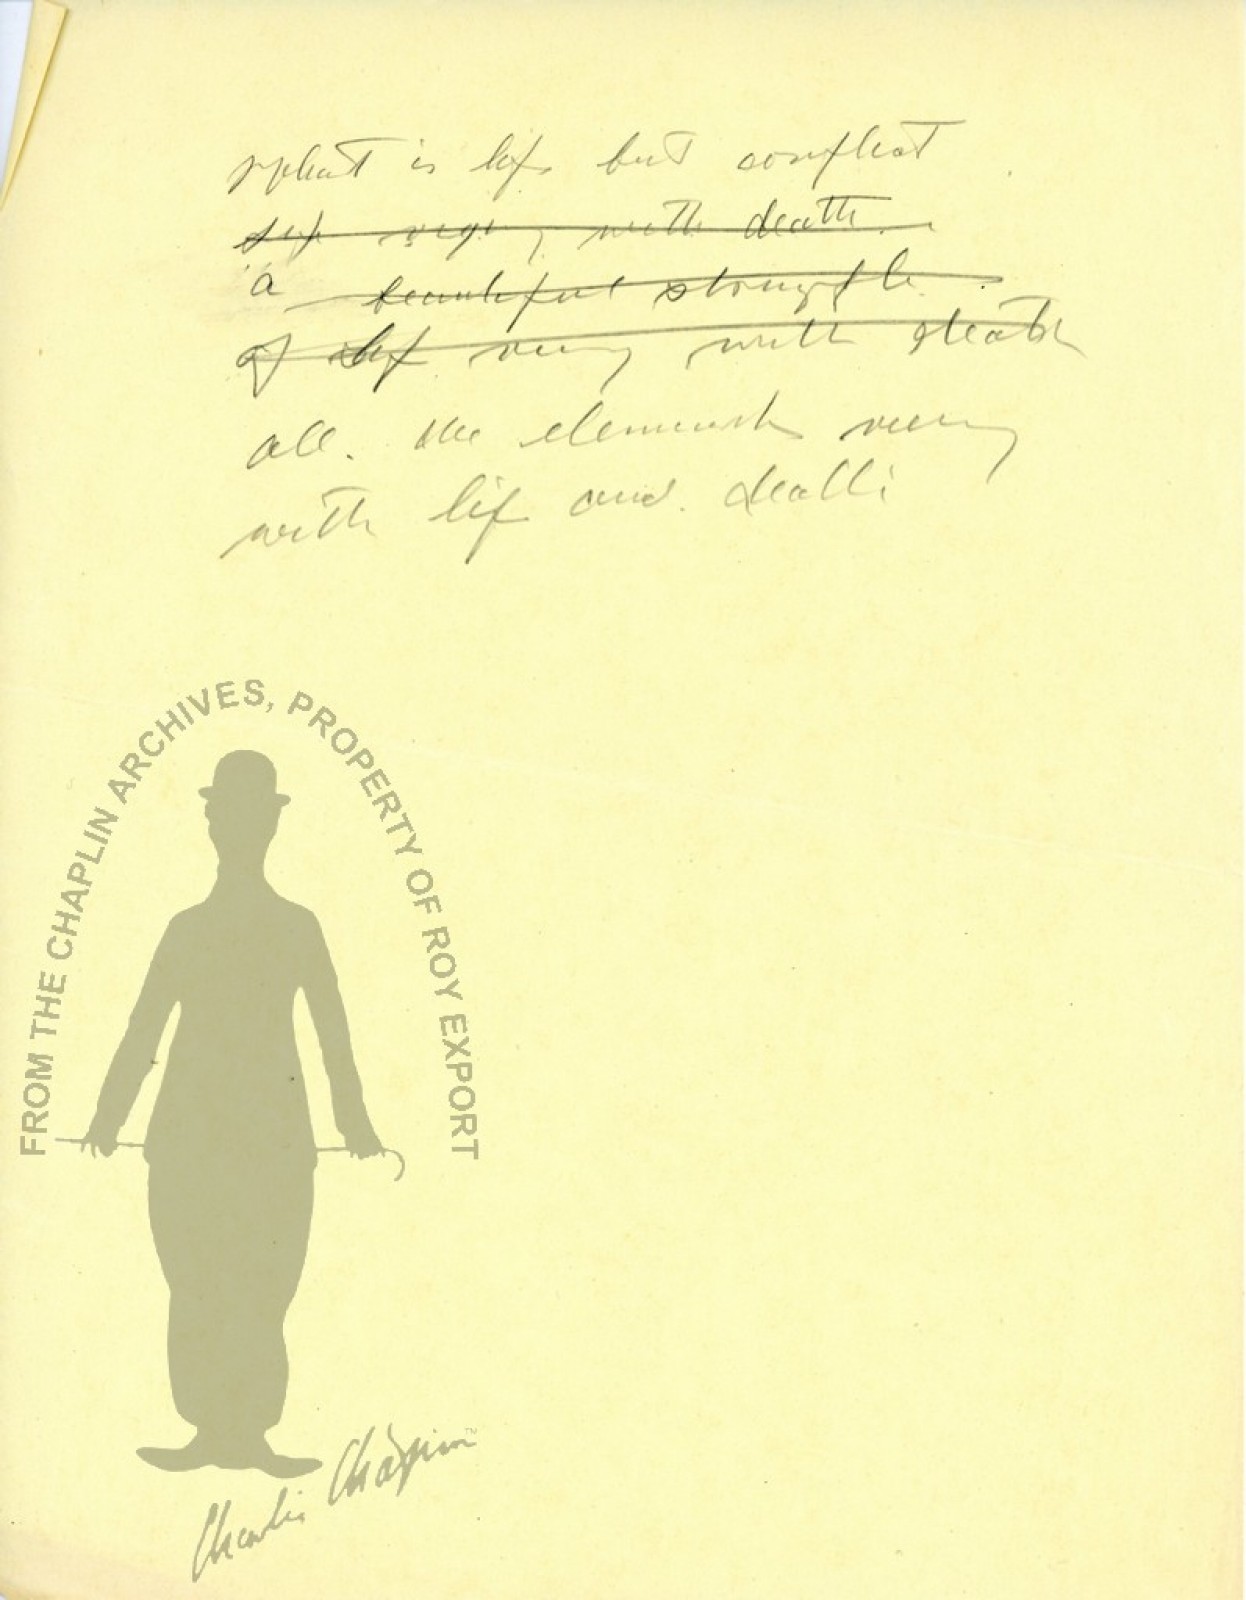 what is life but conflict
life vieing with death.
a beautiful struggle.
of life vieing with death
all. the elements vieing
with life and. death
FROM THE CHAPLIN ARCHIVES, PROPERTY OF ROY EXPORT
Charlie Chaplin